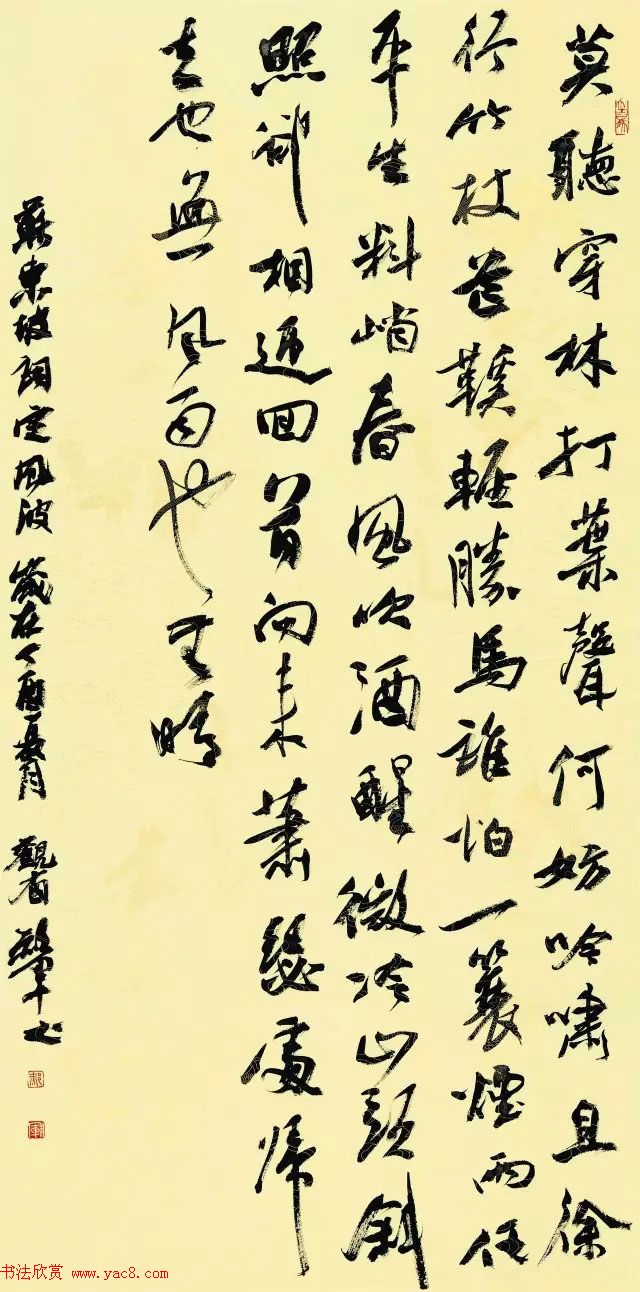 莫聽穿林打葉聲何妨吟嘯且徐
行竹杖芒鞵輕勝馬誰怕一蓑煙雨任
平生料峭春風吹酒醒微冷山頭斜
照卻相迎回首向來蕭瑟處歸
去也無風雨也无晴
蘇東坡詞定風波 歲在丁酉夏月
书法欣赏 www.yac8.com